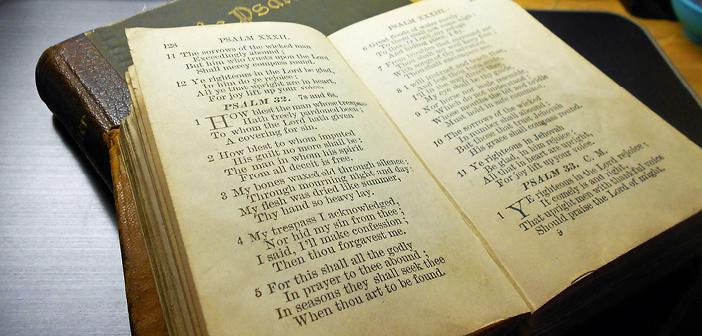 the Psal
128 PSALM XXXII.
11 The sorrows of the wicked man
Exceedingly abound;
But him who trusts upon the Lord
Shall mercy compass round.
12 Ye righteous in the Lord be glad,
In him do ye rejoice:
All ye that upright are in heart,
For joy lift up your voice.
PSALM 32. 7s and 6s.
1 HOW blest the man whose trespass
Hath freely pardoned been;
To whom the Lord hath given
A covering for sin.
2 How blest to whom imputed
His guilt no more shall be;
The man in whom his spirit
From all deceit is free.
3 My bones waxed old through silence;
Through mourning night and day;
My flesh was dried like summer,
Thy hand so heavy lay.
4 My trespass I acknowledged,
Nor hid my sin from thee;
I said, I'll make confession;
Then thou forgavest me.
5 For this shall all the godly
In prayer to thee abound;
In seasons they shall seek thee
When thou art to be found.
PSALM XXXIII.
6 Great floods of water surely
7
8
9 Nor be
10 The sorrows of the wicked
In number shall abound:
But those that trust Jehovah,
His grace shall compass round.
11 Ye righteous in Jehovah
Be glad, in him rejoice;
All that in heart are upright,
For joy lift up your voice.
PSALM 33. C. M.
1 YE righteous in the Lord rejoice;
It comely is and right,
That upright men with thankful voice
Should praise the Lord of might.
9